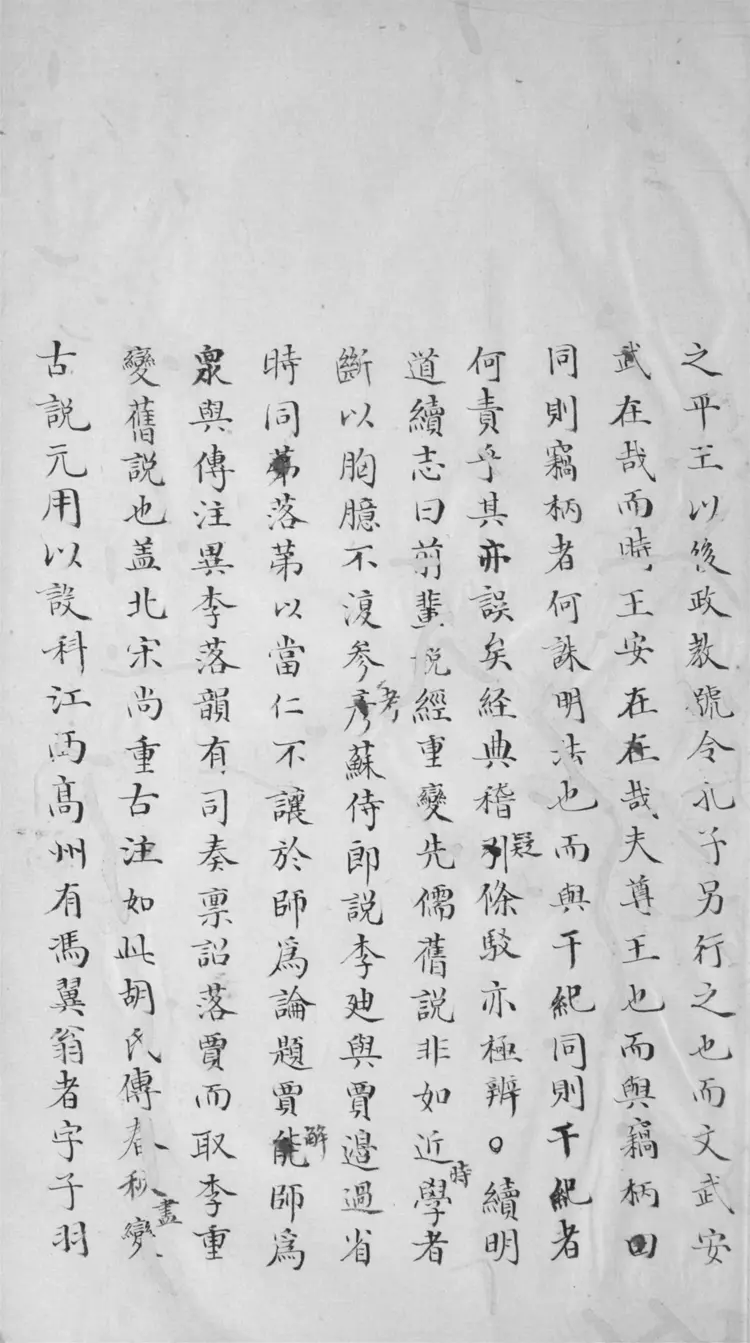 之平王以後政教號令孔子另行之也而文武安
武在哉而時王安在在哉夫尊王也而與竊柄回
同則竊柄者何誅明法也而與干紀同則干紀者
何責乎其亦誤矣経典稽引疑條駁亦極辨○續明
道續志曰前輩說經重變先儒舊說非如近時學者
斷以胸臆不復參考彥蘇侍郎説李廸與賈邉過省
時同落第以當仁不讓於師爲論題賈解師爲
衆與傳注異李落韻有司奏禀詔落賈而取李重
變舊説也盖北宋尚重古注如此胡氏傳春秋盡變
古説元用以設科江西髙州有馮翼翁者字子羽